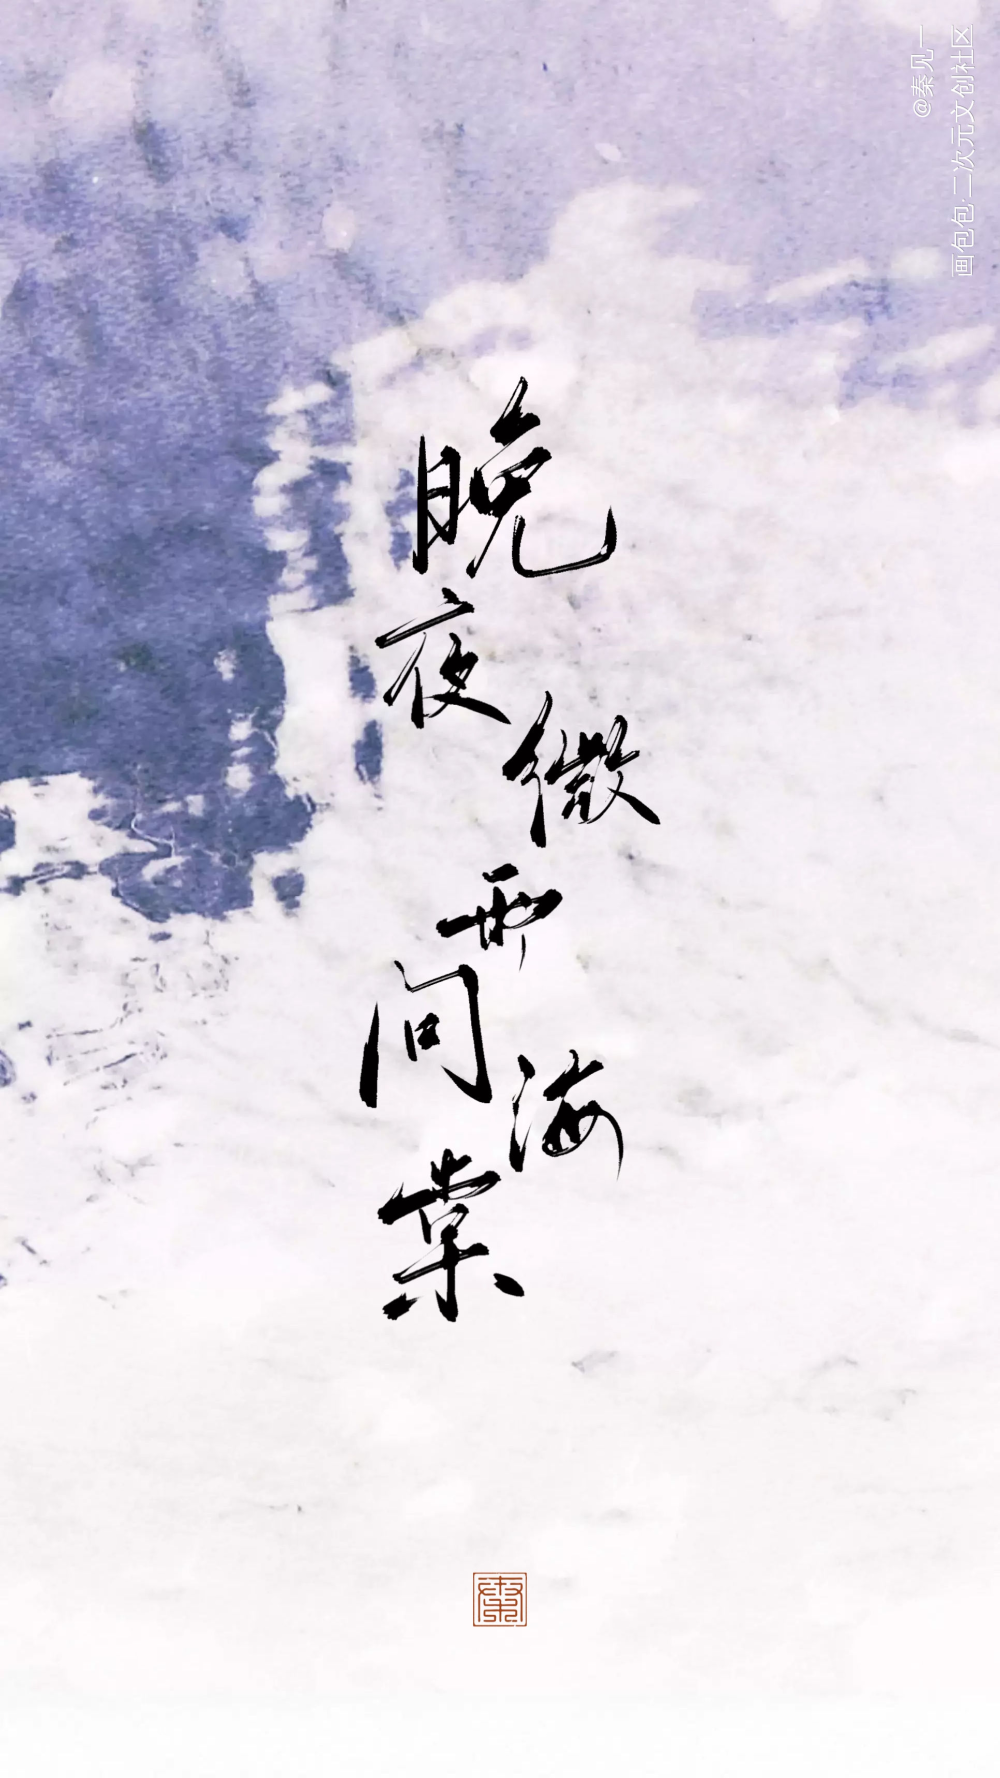 晚夜微雨问海棠
@秦见一
画包包·二次元文创社区